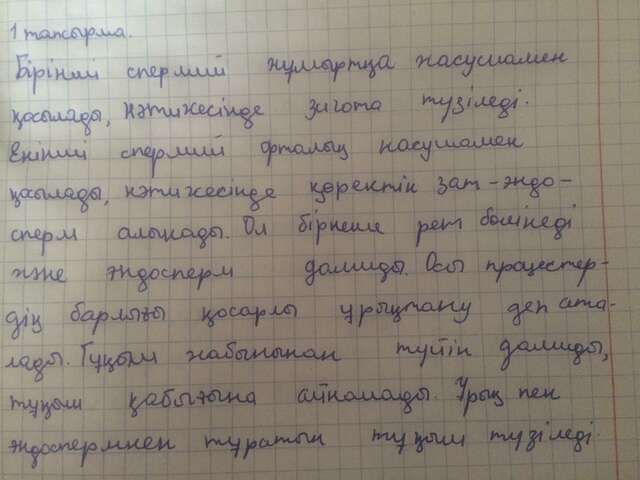 1 тапсырма.
Бірінші спермий жұмыртқа жасушамен
қосылады, нәтижесінде зигота түзіледі.
Екінші спермий орталық жасушамен
қосылады, нәтижесінде қоректік зат - эндо-
сперм алынады. Ол бірнеше рет бөлінеді
және эндосперм дамиды. Осы процестер-
дің барлығы қосарлы ұрықтану деп ата-
лады. Тұқым жабынынан түйін дамиды,
тұқым қабығына айналады. Ұрық пен
эндоспермнен тұратын тұқым түзіледі.